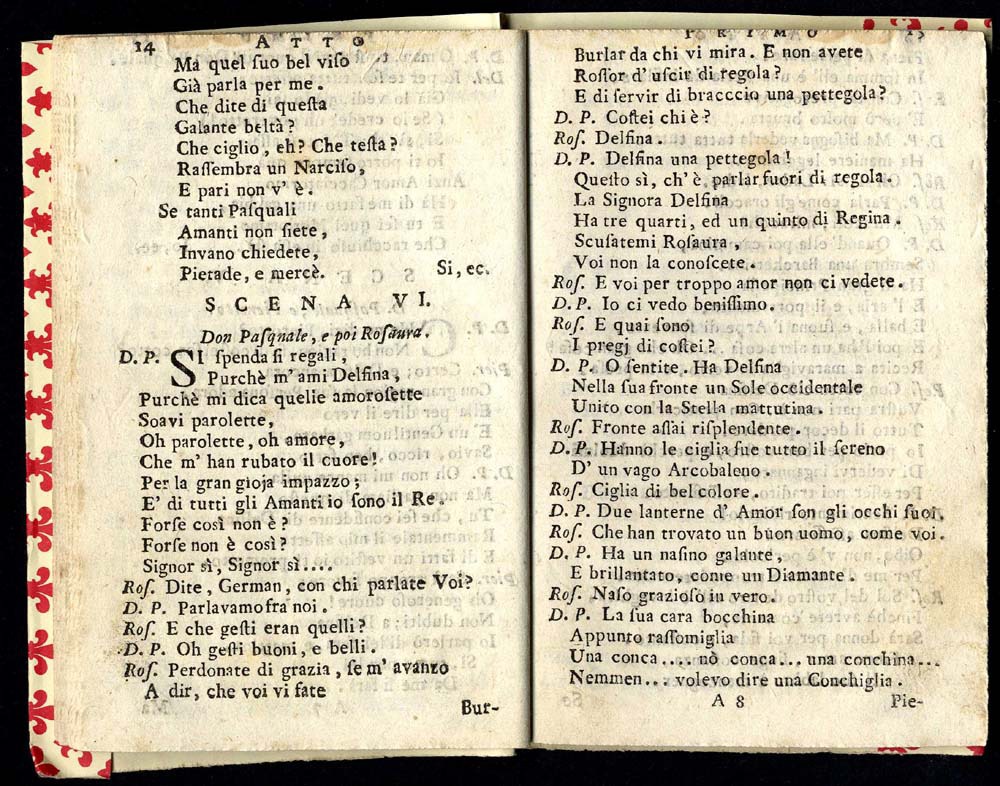 14 ATTO
Ma quel ſuo bel viſo
Già parla per me.
Che dite di queſta
Galante beltà?
Che ciglio, eh? Che teſta?
Raſſembra un Narciſo,
E pari non v' è.
Se tanti Paſquali
Amanti non ſiete,
Invano chiedete,
Pietade, e mercè. Si, ec.
SCENA VI.
Don Paſquale, e poi Roſaura.
D. P. SI ſpenda ſi regali,
Purchè m' ami Delfina,
Purchè mi dica quelle amoroſette
Soavi parolette,
Oh parolette, oh amore,
Che m' han rubato il cuore!
Per la gran gioja impazzo;
E' di tutti gli Amanti io ſono il Re.
Forſe così non è?
Forſe non è così?
Signor sì, Signor sì....
Roſ. Dite, German, con chi parlate Voi?
D. P. Parlavamo fra noi.
Roſ. E che geſti eran quelli?
D. P. Oh geſti buoni, e belli.
Roſ. Perdonate di grazia, ſe m' avanzo
A dir, che voi vi fate
Bur-
PRIMO 15
Burlar da chi vi mira. E non avete
Roſſor d' uſcir di regola?
E di ſervir di bracccio una pettegola?
D. P. Coſtei chi è?
Roſ. Delfina.
D. P. Delfina una pettegola!
Queſto sì, ch' è parlar fuori di regola.
La Signora Delfina
Ha tre quarti, ed un quinto di Regina.
Scuſatemi Roſaura,
Voi non la conoſcete.
Roſ. E voi per troppo amor non ci vedete.
D. P. Io ci vedo beniſſimo.
Roſ. E quai ſono
I pregj di coſtei?
D. P. O ſentite. Ha Delfina
Nella ſua fronte un Sole occidentale
Unito con la Stella mattutina.
Roſ. Fronte aſſai riſplendente.
D. P. Hanno le ciglia ſue tutto il ſereno
D' un vago Arcobaleno.
Roſ. Ciglia di bel colore.
D. P. Due lanterne d' Amor ſon gli occhi ſuoi.
Roſ. Che han trovato un buon uomo, come voi.
D. P. Ha un naſino galante,
E brillantato, come un Diamante.
Roſ. Naſo grazioſo in vero.
D. P. La ſua cara bocchina
Appunto raſſomiglia
Una conca.... nò conca... una conchina...
Nemmen... volevo dire una Conchiglia.
A 8 Pie-